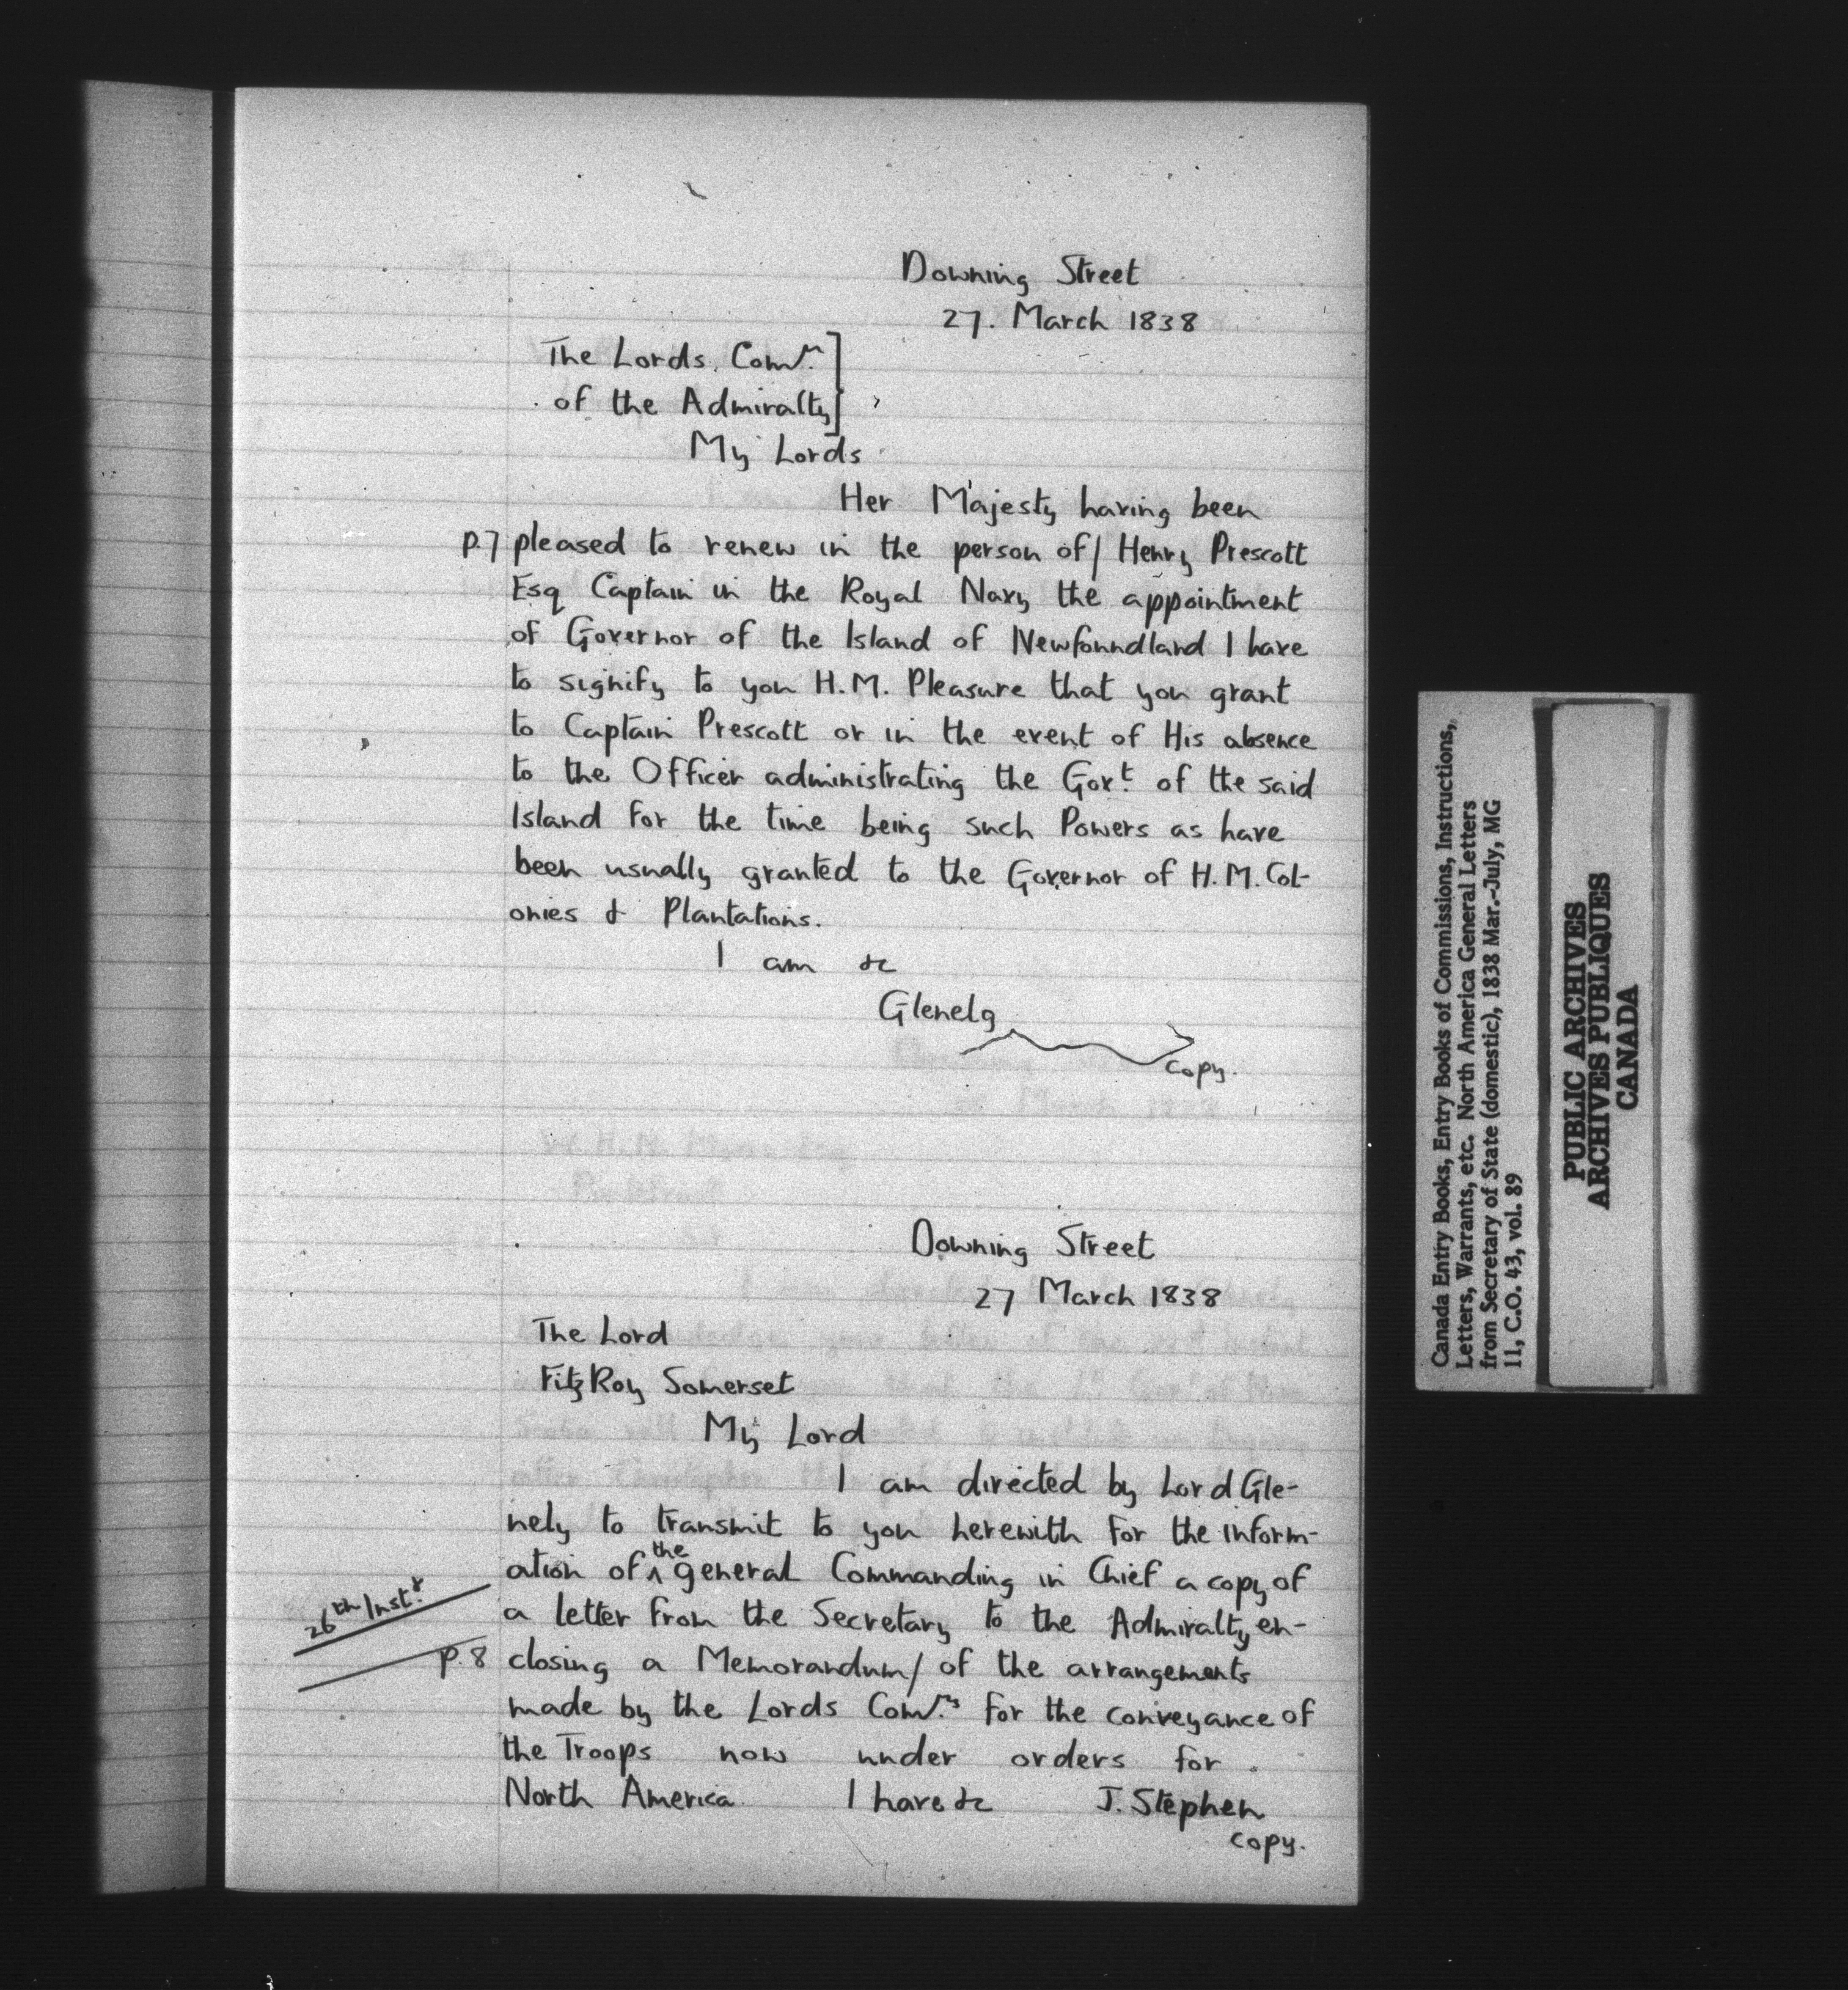 Downing Street
27. March 1838
The Lords Comrs.
of the Admiralty
My Lords
Her Majesty having been
p.7 pleased to renew in the person of / Henry Prescott
Esq Captain in the Royal Navy the appointment
of Governor of the Island of Newfoundland I have
to signify to you H.M. Pleasure that you grant
to Captain Prescott or in the event of His absence
to the Officer administrating the Govt. of the said
Island for the time being such Powers as have
been usually granted to the Governor of H.M. Col-
onies & Plantations.
I am &c
Glenelg
copy.
Downing Street
27 March 1838
The Lord
FitzRoy Somerset
My Lord
I am directed by Lord Gle-
nely to transmit to you herewith for the inform-
ation of the general Commanding in Chief a copy of
26th Inst.
a letter from the Secretary to the Admiralty en-
p.8 closing a Memorandum / of the arrangements
made by the Lords Comrs. for the conveyance of
the Troops now under orders for
North America I have &c J. Stephen
copy.
Canada Entry Books, Entry Books of Commissions, Instructions,
Letters, Warrants, etc. North America General Letters
from Secretary of State (domestic), 1838 Mar.-July, MG
11, C.O. 43, vol. 89
PUBLIC ARCHIVES
ARCHIVES PUBLIQUES
CANADA